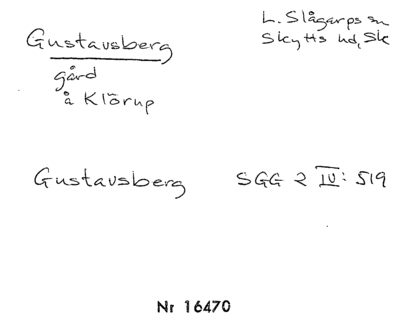 Gustavsberg
gård
å Klörup
L. Slågarps sn
Skytts hd, Sk
Gustavsberg SGG 2 IV: 519
Nr 16470